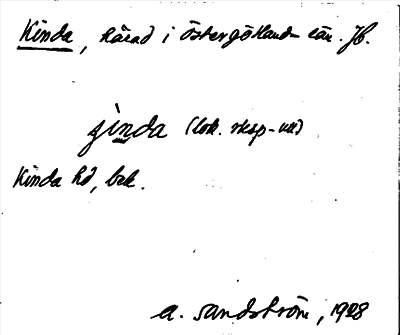 Kinda, härad i Östergötlands län. Jb.
jinda (lok. rksp-utt)
Kinda hd, bek.
A. Sandström, 1928